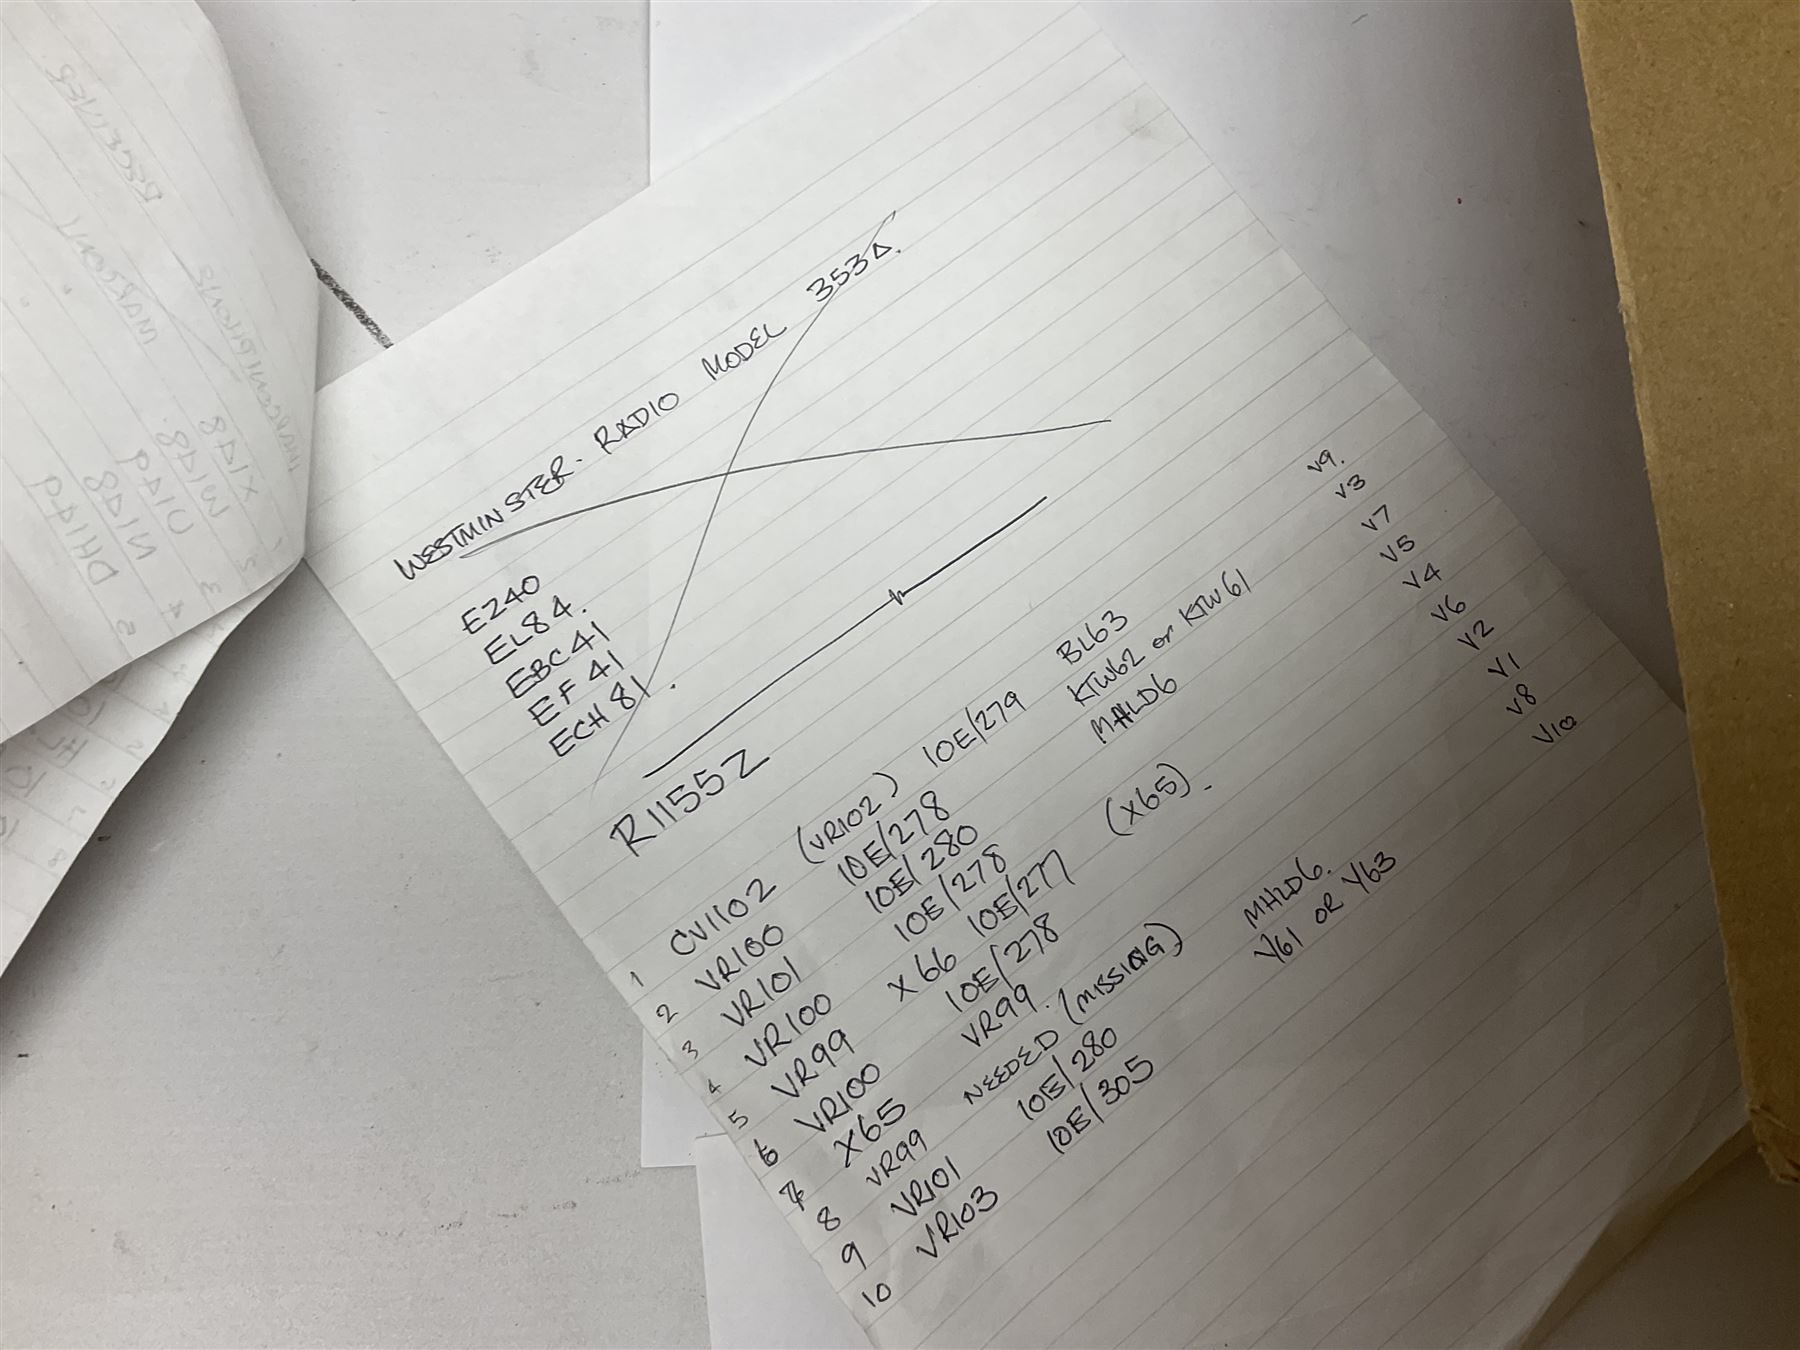 WESTMINSTER. RADIO MODEL 353A.
EZ40
EL84.
EBC41
EF41
ECH81.
R1155Z
1 CV1102 (VR102) 10E/279 BL63 V9.
2 VR100 10E/278 KTW62 or KTW61 V3
3 VR101 10E/280 MHLD6 V7
4 VR100 10E/278 V5
5 VR99 X66 10E/277 (X65). V4
6 VR100 10E/278 V6
7 X65 VR99. V2
8 VR99 NEEDED (MISSING) V1
9 VR101 10E/280 MHLD6. V8
10 VR103 10E/305 Y61 OR Y63 V10
RECEIVER
MARCONI
X148
W148
U149
N148
DH149